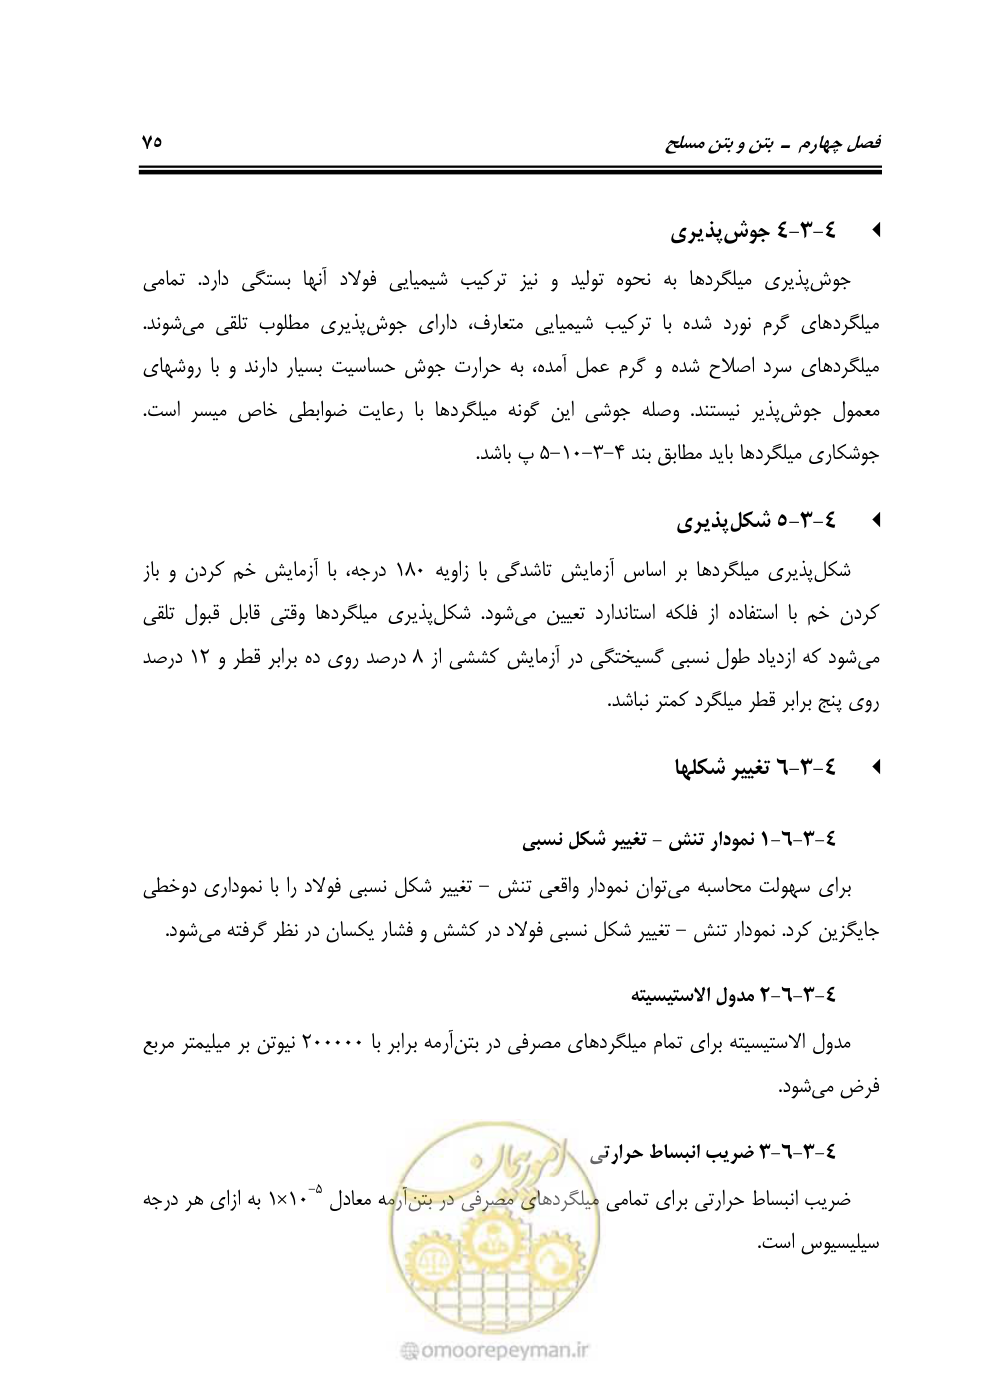 فصل چهارم ـ بتن و بتن مسلح ۷۵
۴-۳-۴ جوش‌پذیری
جوش‌پذیری میلگردها به نحوه تولید و نیز ترکیب شیمیایی فولاد آنها بستگی دارد. تمامی
میلگردهای گرم نورد شده با ترکیب شیمیایی متعارف، دارای جوش‌پذیری مطلوب تلقی می‌شوند.
میلگردهای سرد اصلاح شده و گرم عمل آمده، به حرارت جوش حساسیت بسیار دارند و با روشهای
معمول جوش‌پذیر نیستند. وصله جوشی این گونه میلگردها با رعایت ضوابطی خاص میسر است.
جوشکاری میلگردها باید مطابق بند ۴-۳-۱۰-۵ پ باشد.
۴-۳-۵ شکل‌پذیری
شکل‌پذیری میلگردها بر اساس آزمایش تاشدگی با زاویه ۱۸۰ درجه، با آزمایش خم کردن و باز
کردن خم با استفاده از فلکه استاندارد تعیین می‌شود. شکل‌پذیری میلگردها وقتی قابل قبول تلقی
می‌شود که ازدیاد طول نسبی گسیختگی در آزمایش کششی از ۸ درصد روی ده برابر قطر و ۱۲ درصد
روی پنج برابر قطر میلگرد کمتر نباشد.
۴-۳-۶ تغییر شکلها
۴-۳-۶-۱ نمودار تنش – تغییر شکل نسبی
برای سهولت محاسبه می‌توان نمودار واقعی تنش – تغییر شکل نسبی فولاد را با نموداری دوخطی
جایگزین کرد. نمودار تنش – تغییر شکل نسبی فولاد در کشش و فشار یکسان در نظر گرفته می‌شود.
۴-۳-۶-۲ مدول الاستیسیته
مدول الاستیسیته برای تمام میلگردهای مصرفی در بتن‌آرمه برابر با ۲۰۰۰۰۰ نیوتن بر میلیمتر مربع
فرض می‌شود.
۴-۳-۶-۳ ضریب انبساط حرارتی
ضریب انبساط حرارتی برای تمامی میلگردهای مصرفی در بتن‌آرمه معادل ۱×۱۰⁻⁵ به ازای هر درجه
سیلیسیوس است.
امور پیمان
@omoorepeyman.ir